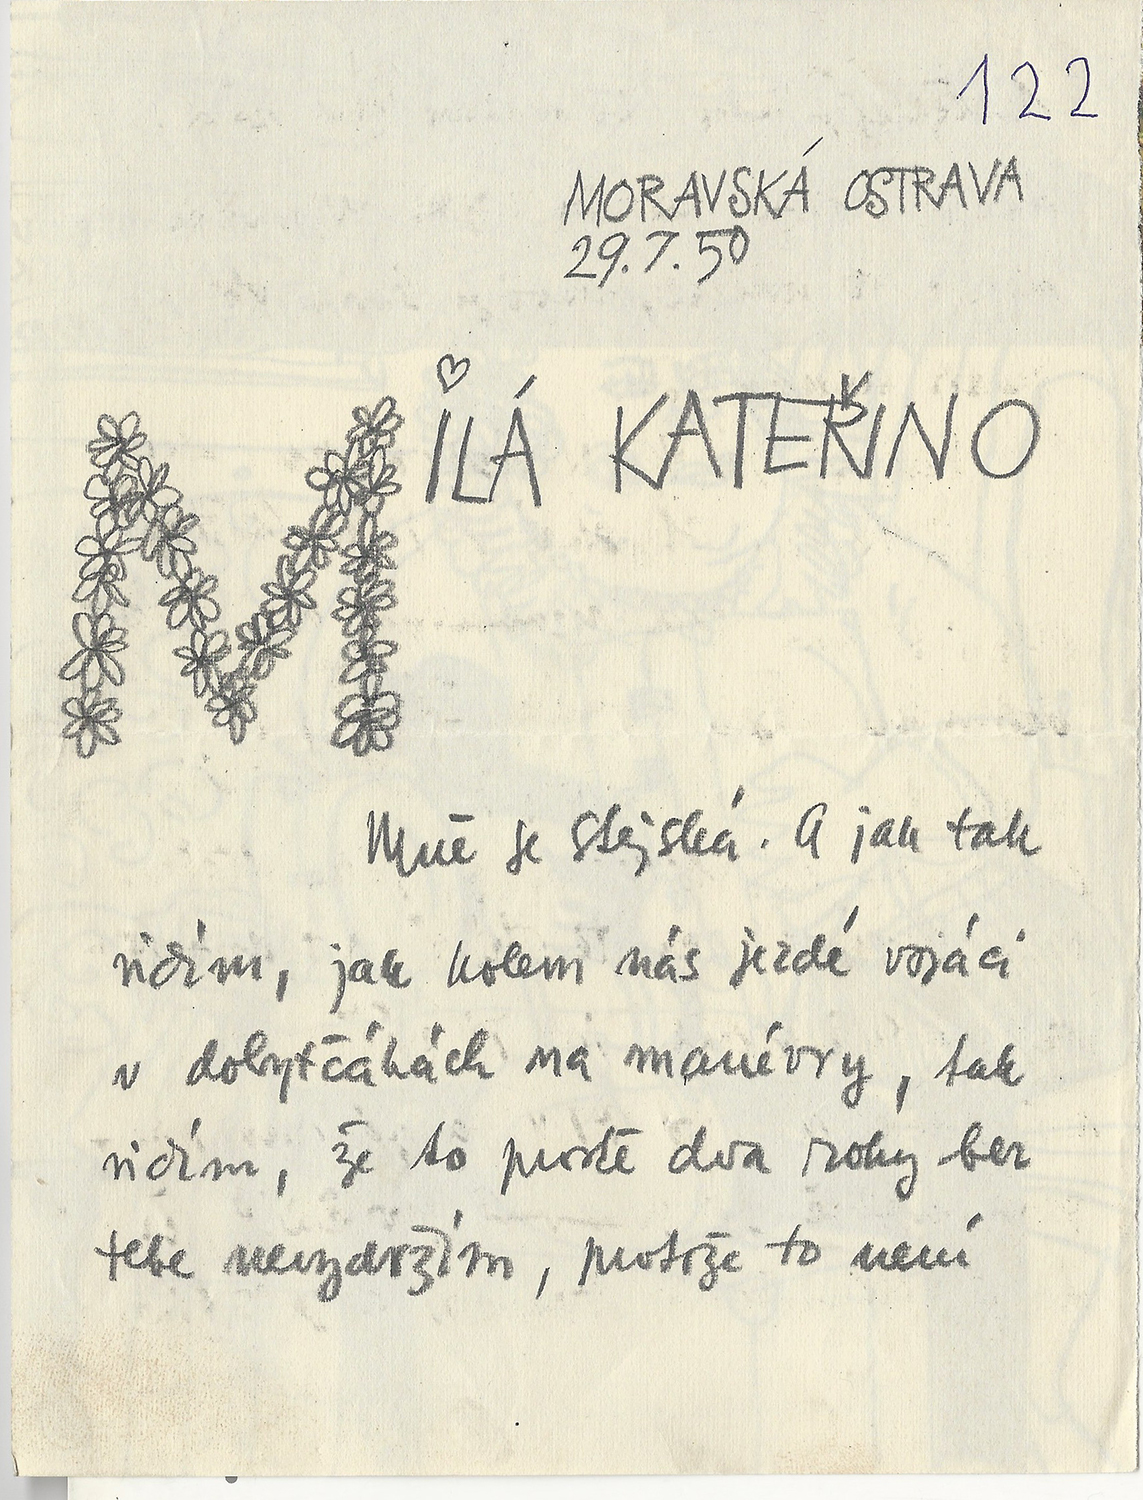 122
MORAVSKÁ OSTRAVA
29.7.50
MILÁ KATEŘINO
Mně se stejská. A jak tak
vidím, jak kolem nás jezdé vojáci
v dobytčákách na manévry, tak
vidím, že to prostě dva roky bez
tebe nevydržím, protože to není